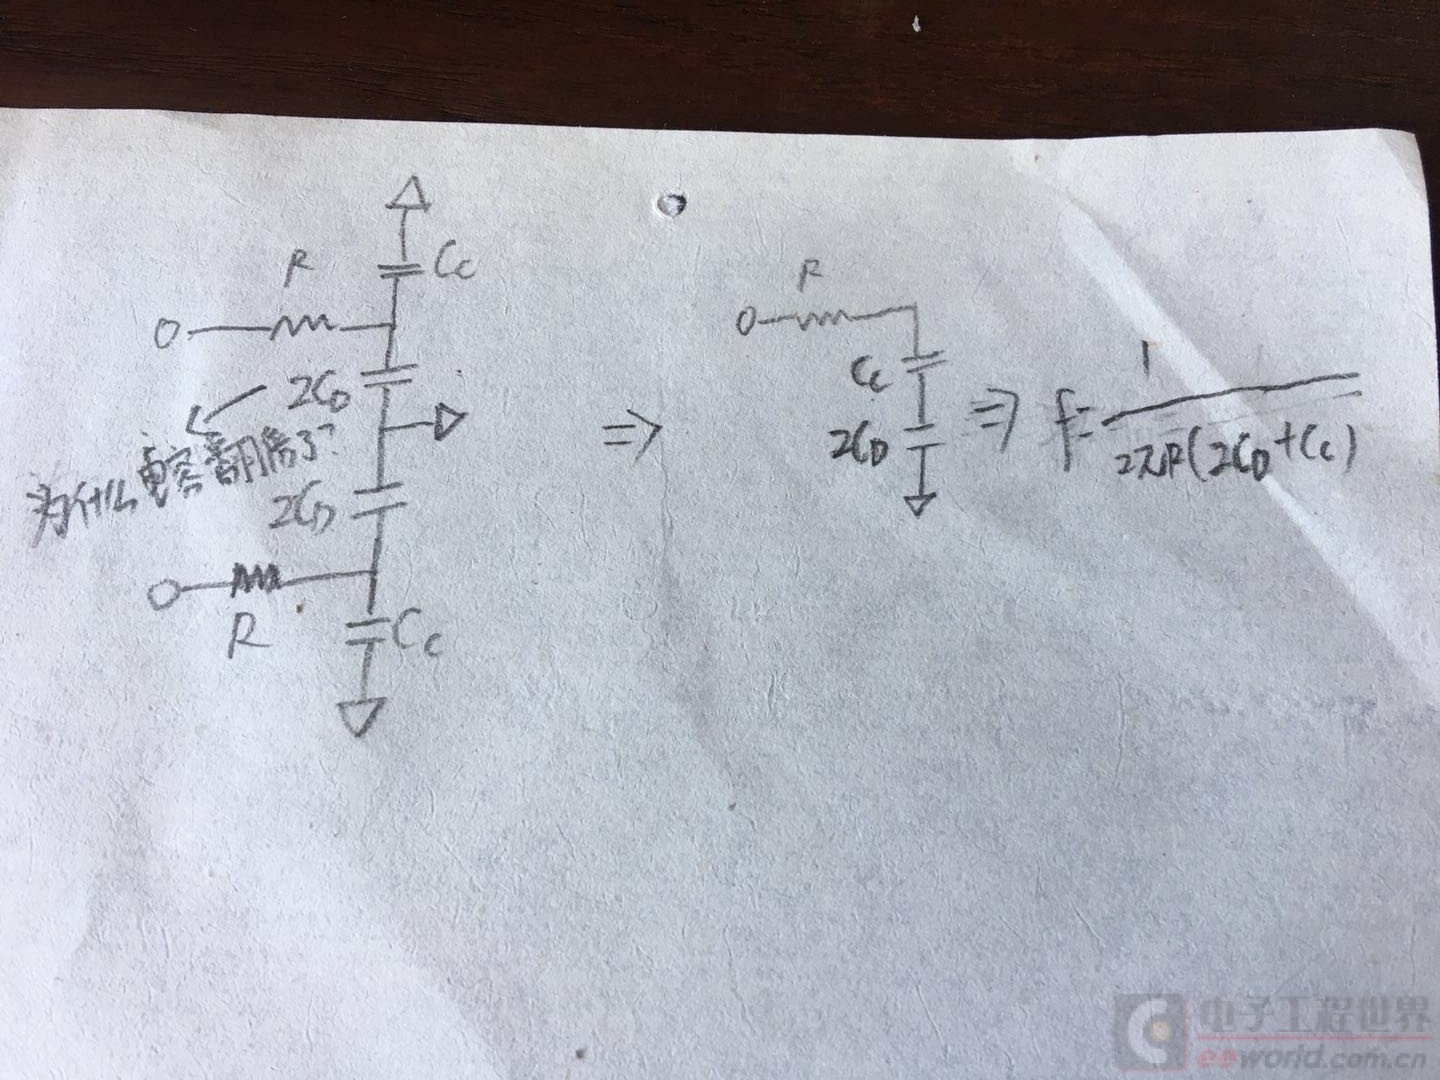 R
Cc
2CD
为什么电容翻倍了?
2CD
R
Cc
⇒
R
Cc
2CD
⇒ f= 1
2πR(2CD+Cc)
电子工程世界
eeworld.com.cn